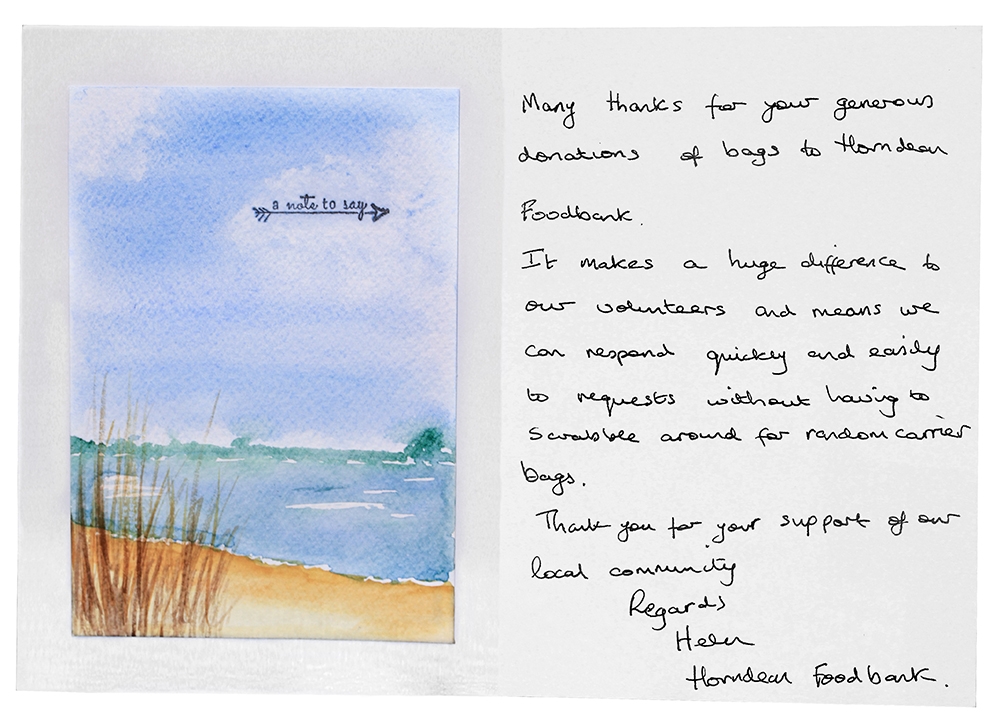 a note to say
Many thanks for your generous
donations of bags to Horndean
Foodbank.
It makes a huge difference to
our volunteers and means we
can respond quickly and easily
to requests without having to
scrabble around for random carrier
bags.
Thank you for your support of our
local community
Regards
Helen
Horndean Foodbank.